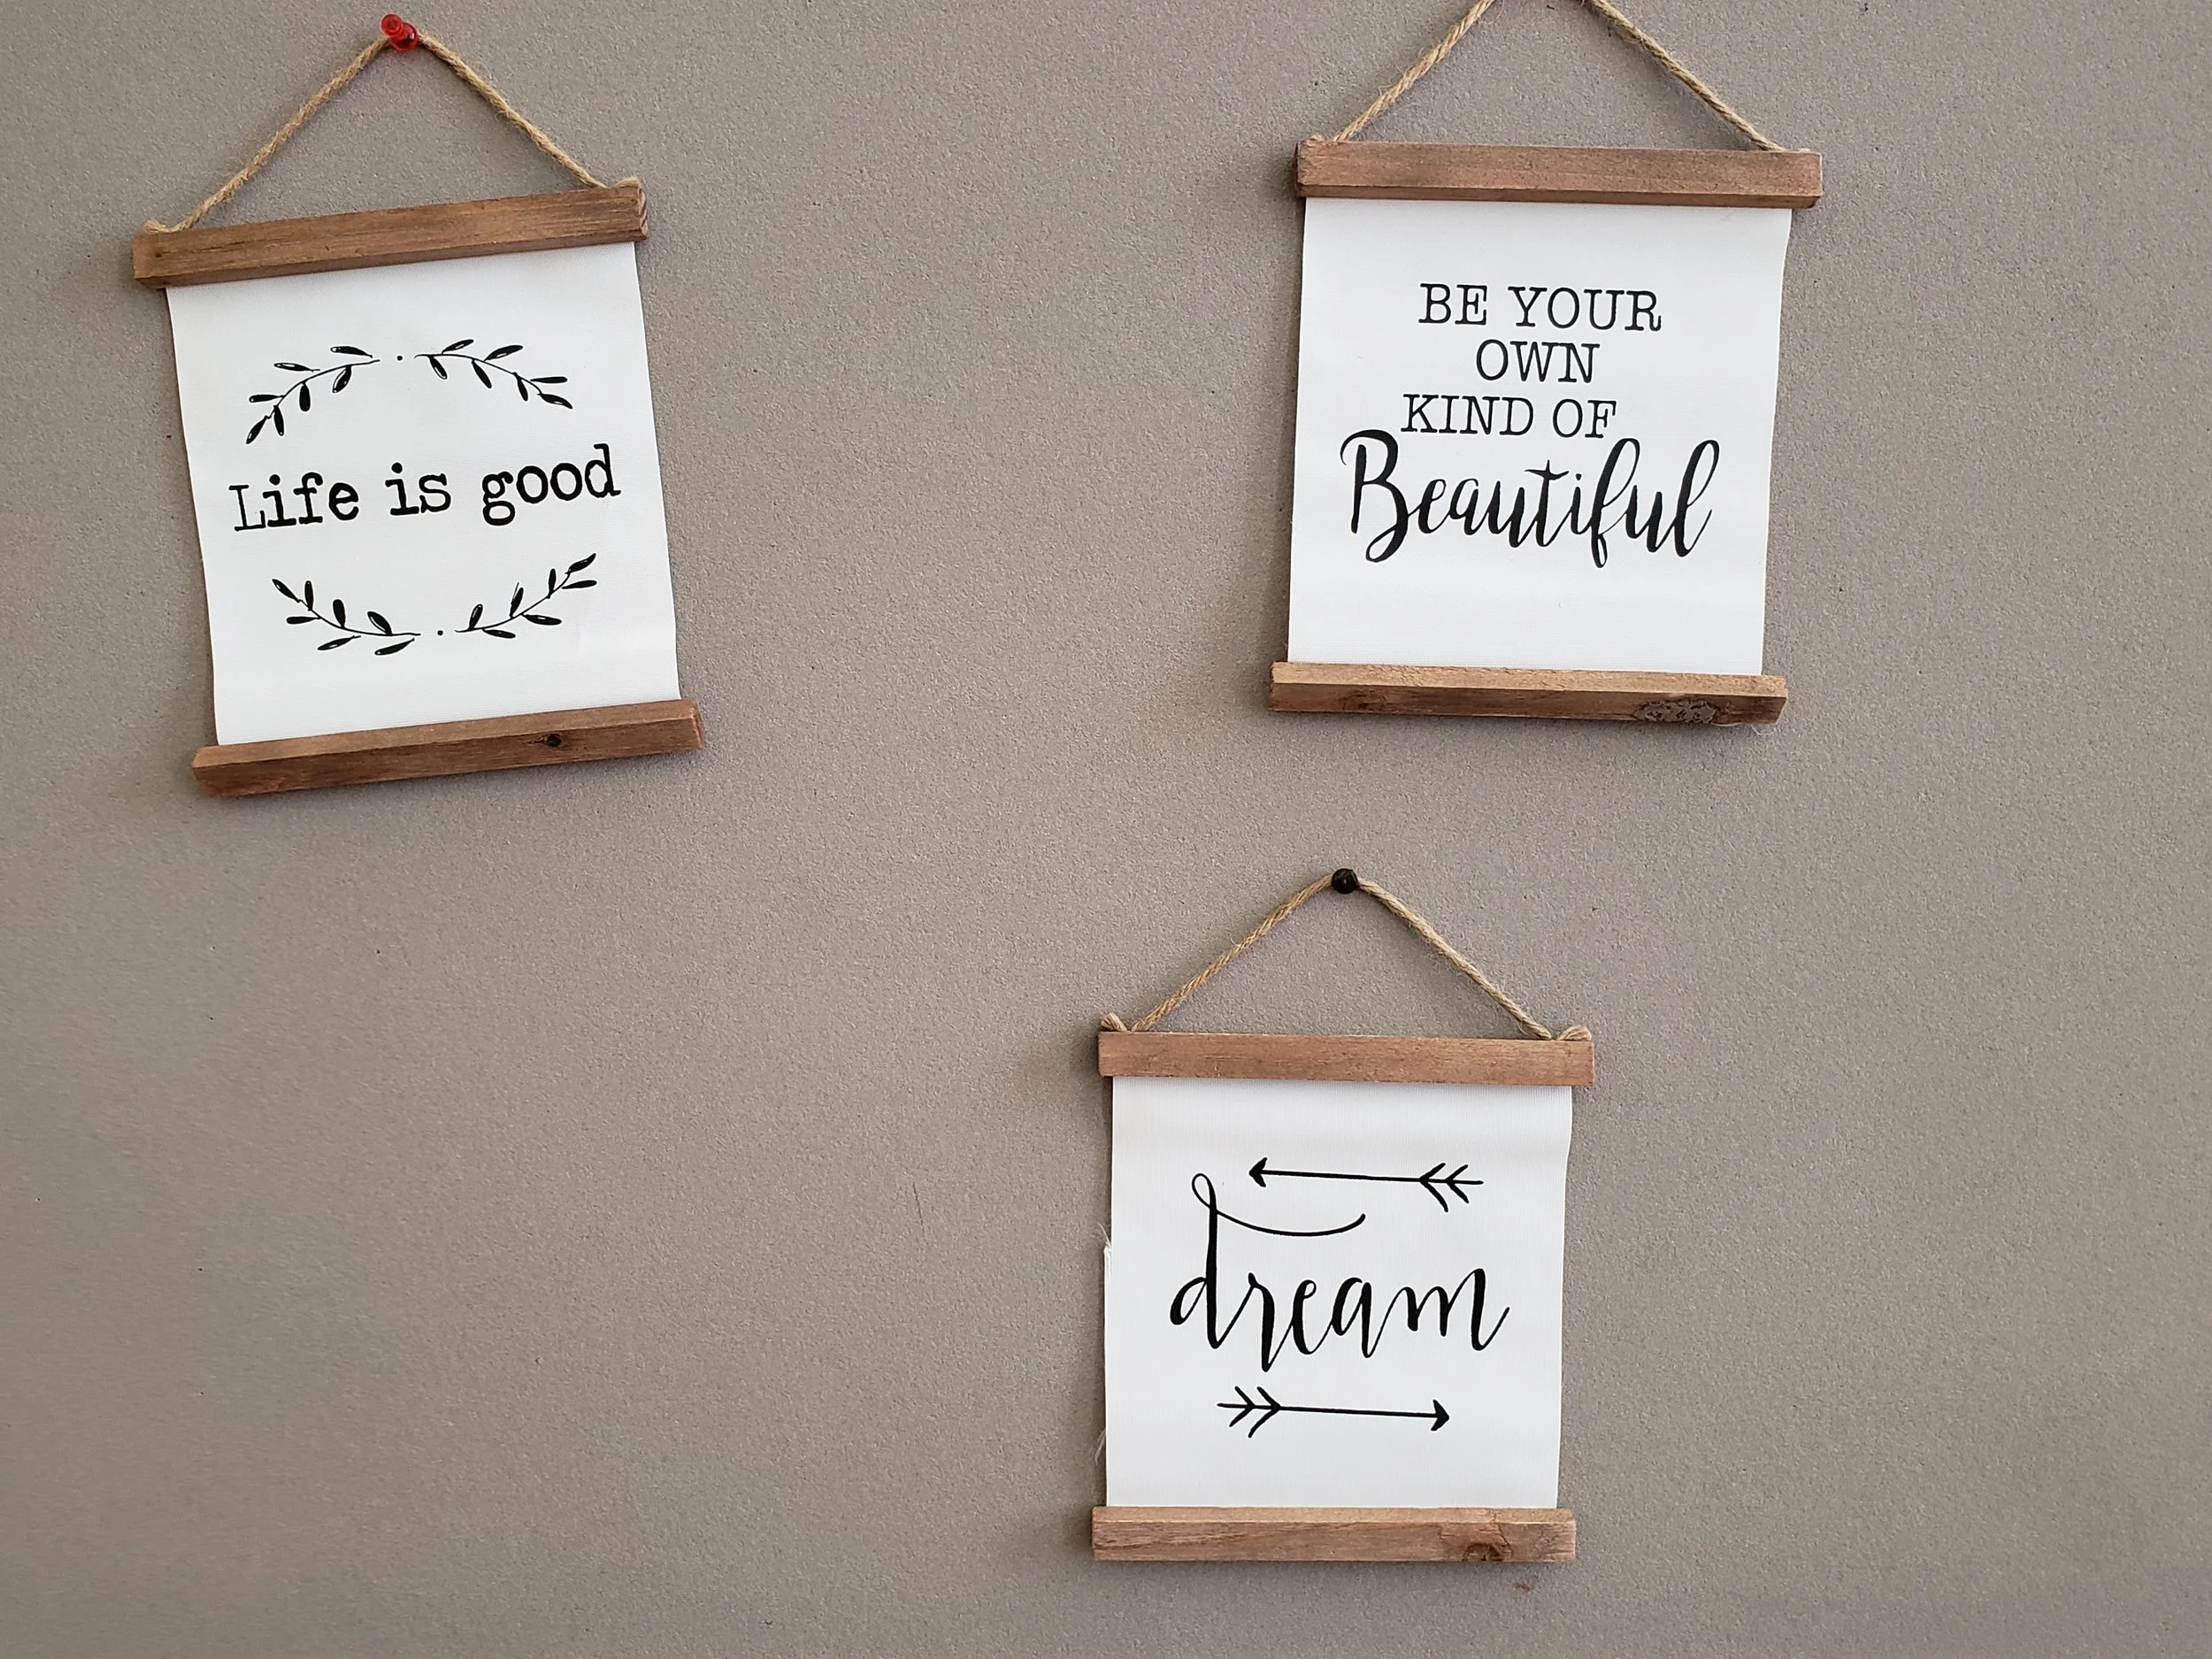 Life is good
BE YOUR
OWN
KIND OF
Beautiful
dream